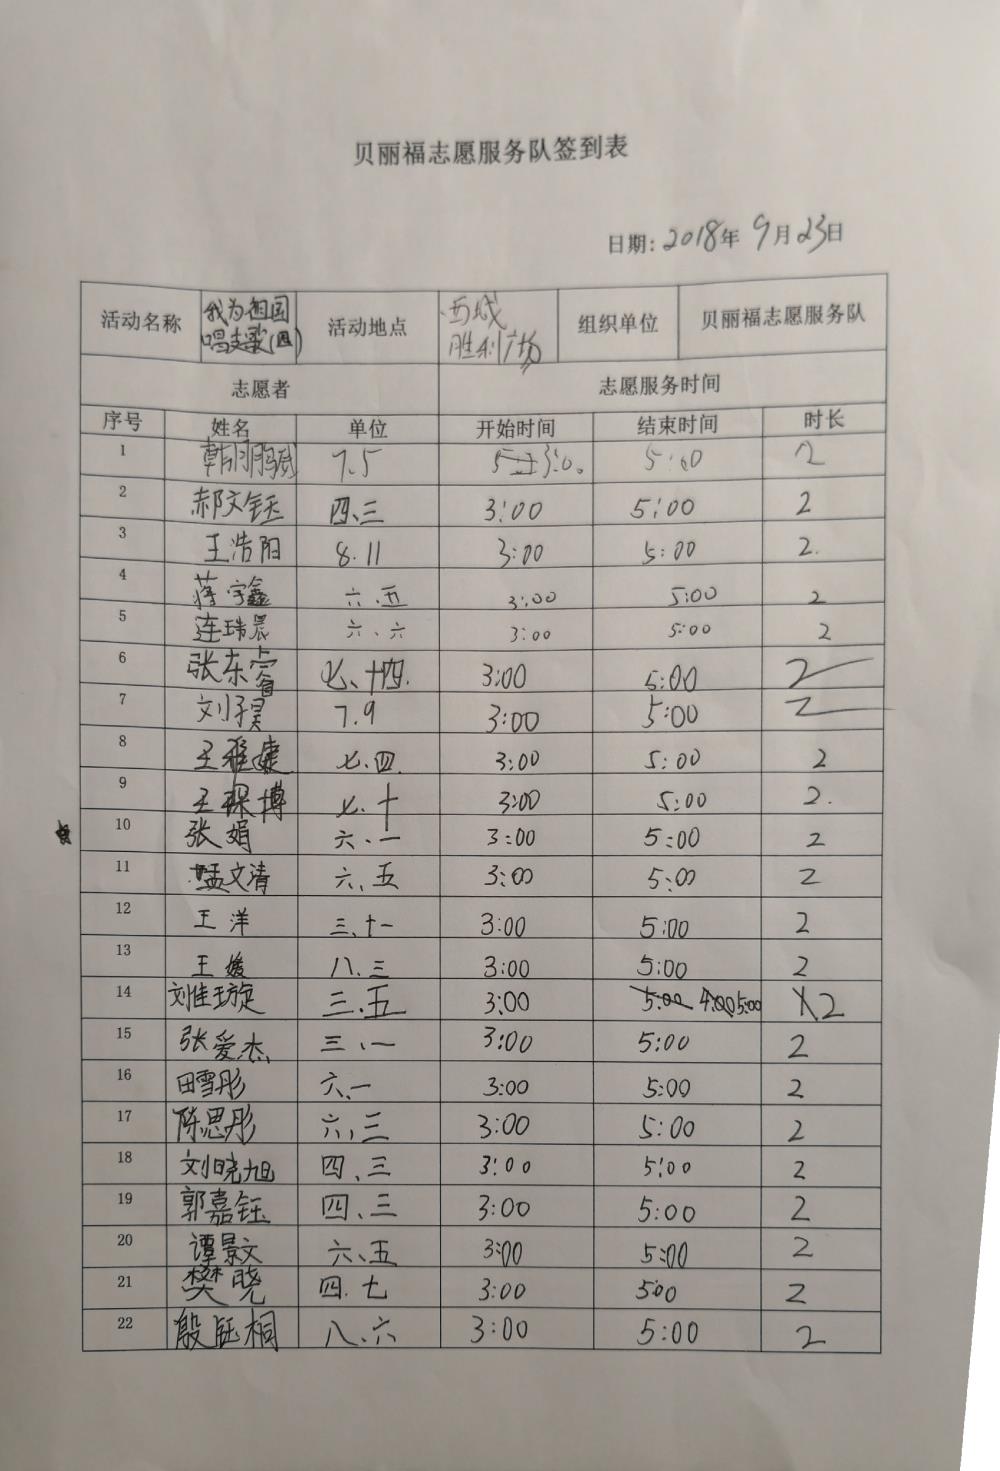 贝丽福志愿服务队签到表
日期: 2018年 9月 23日
活动名称 我为祖国唱支歌(四) 活动地点 西城胜利广场 组织单位 贝丽福志愿服务队
志愿者 志愿服务时间
序号 姓名 单位 开始时间 结束时间 时长
1 7.5 3:0. 5:00 2
2 郝文钰 四、三 3:00 5:00 2
3 王浩阳 8.11 3:00 5:00 2.
4 蒋宇鑫 六、五 3:00 5:00 2
5 连玮晨 六、六 3:00 5:00 2
6 张东睿 七、十四. 3:00 5:00 2
7 刘子昊 7.9 3:00 5:00 2
8 王雅婕 七.四. 3:00 5:00 2
9 王琛博 七.十 3:00 5:00 2.
10 张娟 六、一 3:00 5:00 2
11 孟文清 六、五 3:00 5:00 2
12 王洋 三、十一 3:00 5:00 2
13 王媛 八、三 3:00 5:00 2
14 刘佳璇 三、五 3:00 5:00 4:00 5:00 2
15 张爱杰 三、一 3:00 5:00 2
16 田雪彤 六、一 3:00 5:00 2
17 陈思彤 六、三 3:00 5:00 2
18 刘晓旭 四、三 3:00 5:00 2
19 郭嘉钰 四、三 3:00 5:00 2
20 谭景文 六、五 3:00 5:00 2
21 樊晓 四.七 3:00 5:00 2
22 殷钰桐 八、六 3:00 5:00 2